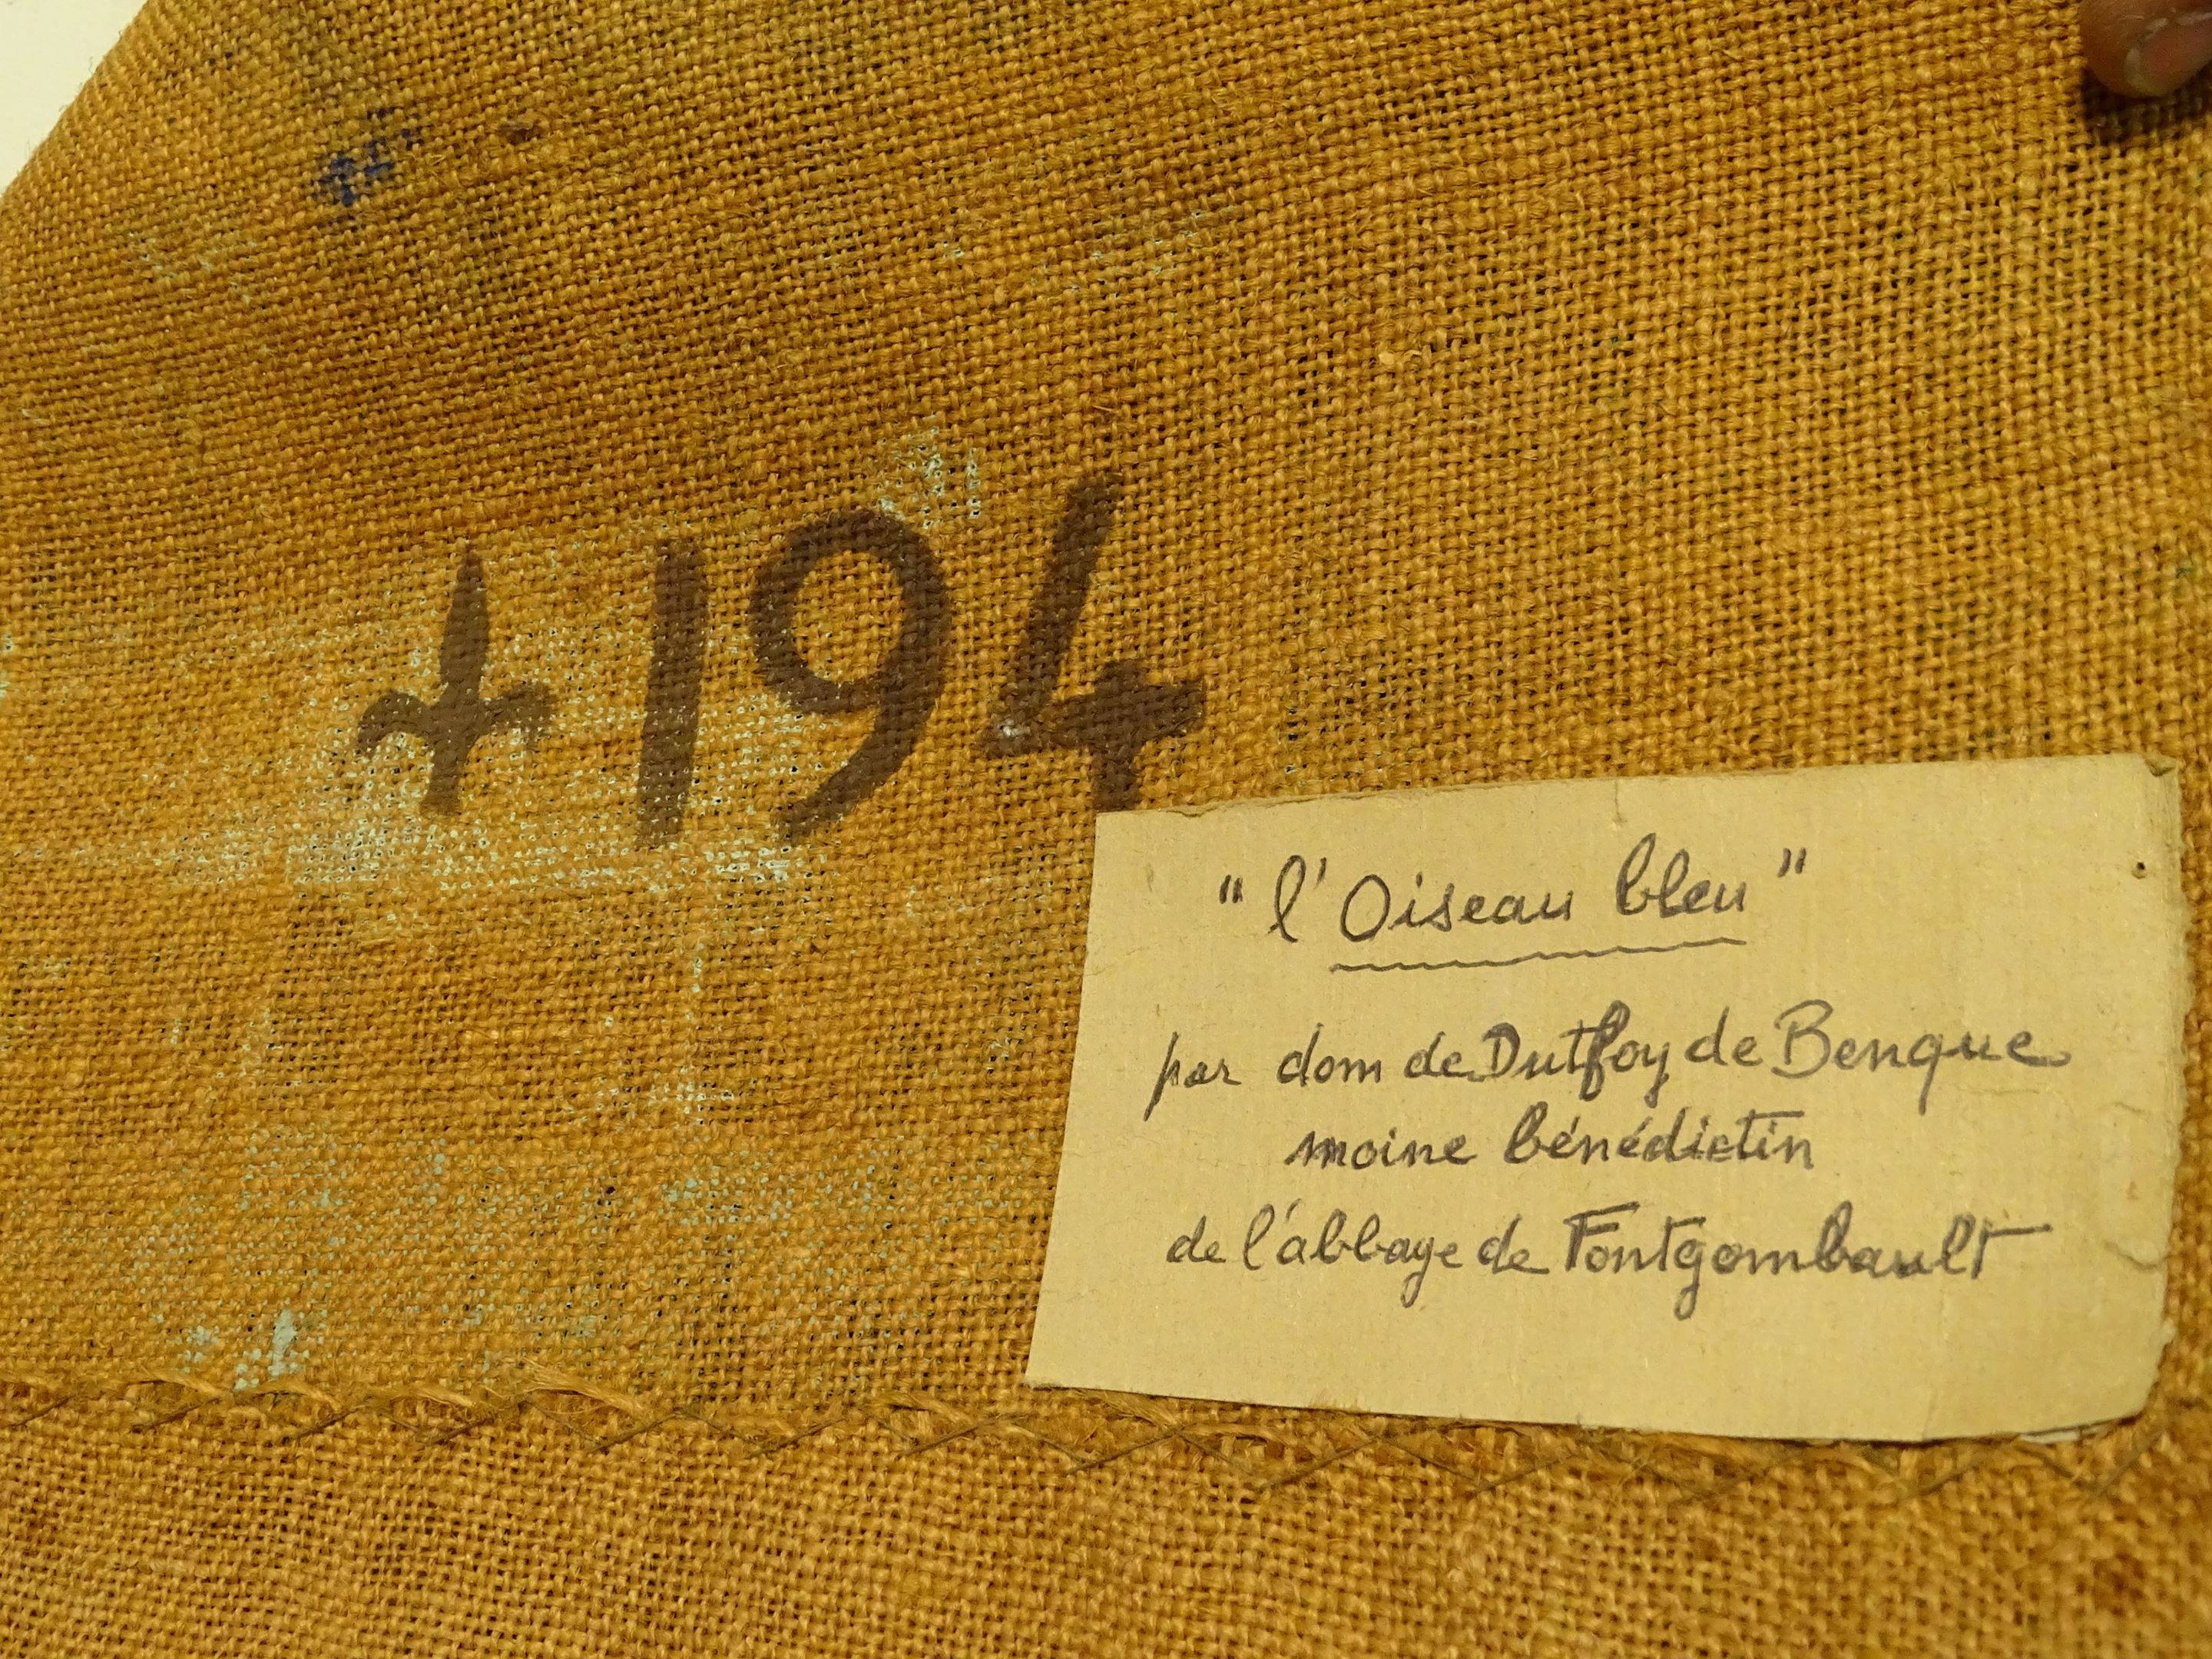 194
"l'Oiseau bleu"
par dom de Dutfoy de Benque
moine bénédictin
de l'abbaye de Fontgombault